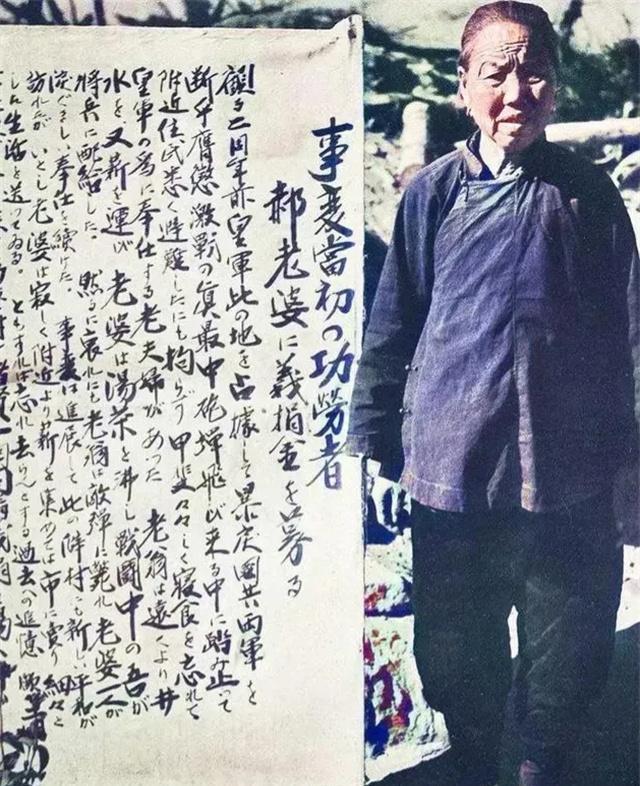 事変當初の功勞者
郝老婆に義捐金を募る
顧る二周年前皇軍此の地を占據して暴戻國共両軍を
断乎膺懲激戰の眞最中砲彈飛び来る中に踏み止って
附近住民悉く避難したにも拘らず甲斐々々しく寝食を忘れて
皇軍の爲に奉仕する老夫婦があった 老翁は遠くより井
水を又薪を運び 老婆は湯茶を沸し戰闘中の吾が
将兵に配給した、然るに哀れにも老翁は敵弾に斃れ老婆一人が
涙ぐましい奉仕を續けた 事変は進展して此の隣村にも新しい平和が
訪れたが いとし老婆は寂しく附近より薪を集めては市に賣り細々と
した生活を送ってゐる。ともすれば忘れ去らんとする過去への追憶